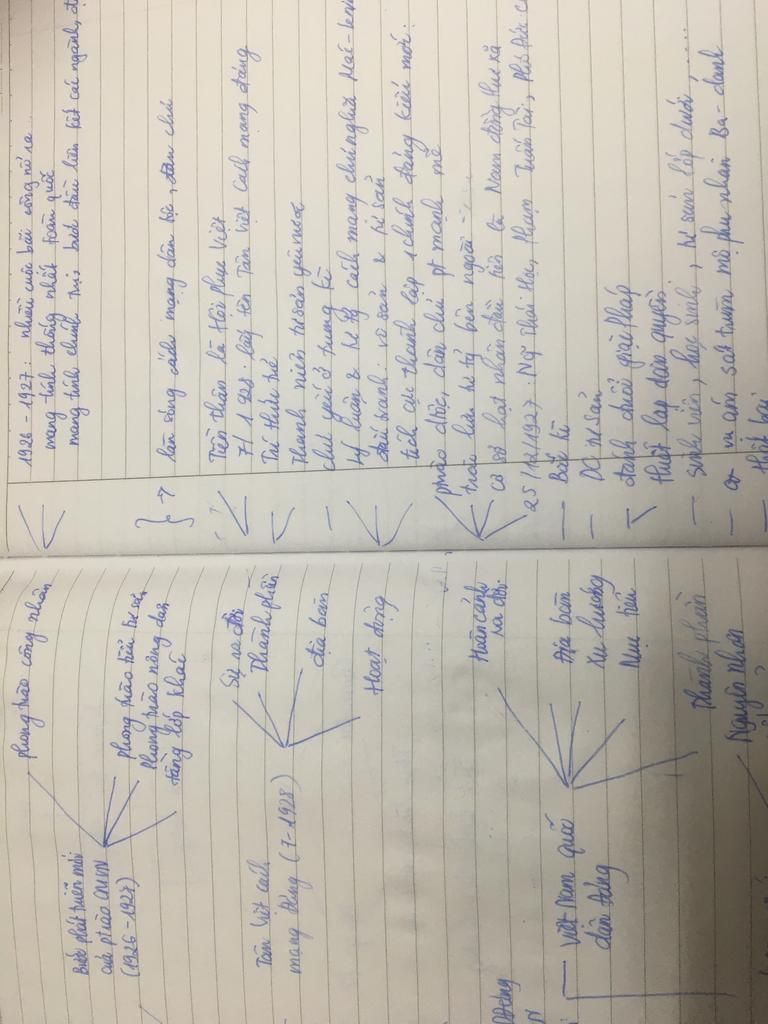 Bước phát triển mới
của ptrào CMVN
(1926-1927)
phong trào công nhân
1926-1927: nhiều cuộc bãi công nổ ra
mang tính thống nhất toàn quốc
mang tính chính trị, bước đầu liên kết các ngành, đ
phong trào tiểu tư sản
phong trào nông dân
tầng lớp khác
} → làn sóng cách mạng dân tộc, dân chủ
Tân Việt cách
mạng đảng (7-1928)
Sự ra đời
Tiền thân là Hội Phục Việt
7/1928: lấy tên Tân Việt Cách mạng đảng
Thành phần
Trí thức trẻ
Thanh niên tư sản yêu nước
địa bàn
chủ yếu ở trung kì
Hoạt động
đấu tranh: vô sản & tư sản
tích cực thành lập 1 chính đảng kiểu mới
Việt Nam quốc
dân đảng
Hoàn cảnh
ra đời
phtrào độc, dân chủ pt mạnh mẽ
bên ngoài
cơ sở hạt nhân đầu tiên là Nam đồng thư xã
25/12/1927: Ng Thái Học, Phạm Tuấn Tài, Phó Đức C
Địa bàn
Bắc kì
Xu hướng
DC tư sản
Mục tiêu
đánh đuổi giặc Pháp
thiết lập dân quyền
Thành phần
sinh viên, học sinh, tư sản lớp dưới, ....
Nguyên nhân
vụ ám sát trùm mộ phu nhân Ba-danh
thất bại